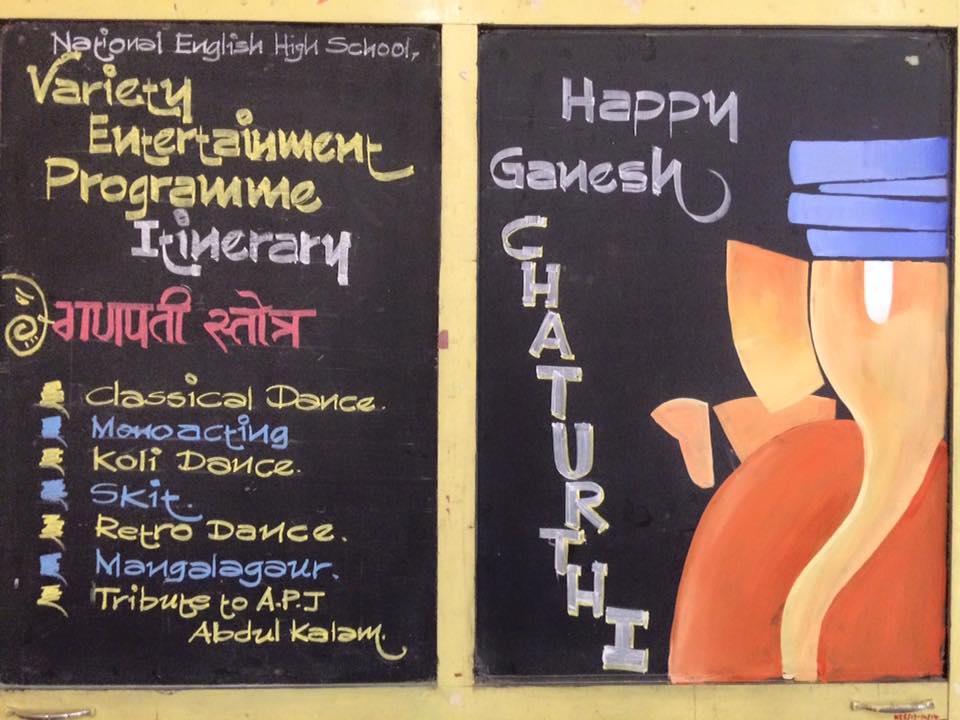 National English High School,
Variety
Entertainment
Programme
Itinerary
गणपती स्तोत्र
Classical Dance.
Monoacting
Koli Dance.
Skit.
Retro Dance.
Mangalagaur.
Tribute to A.P.J
Abdul Kalam.
Happy
Ganesh
CHATURTHI